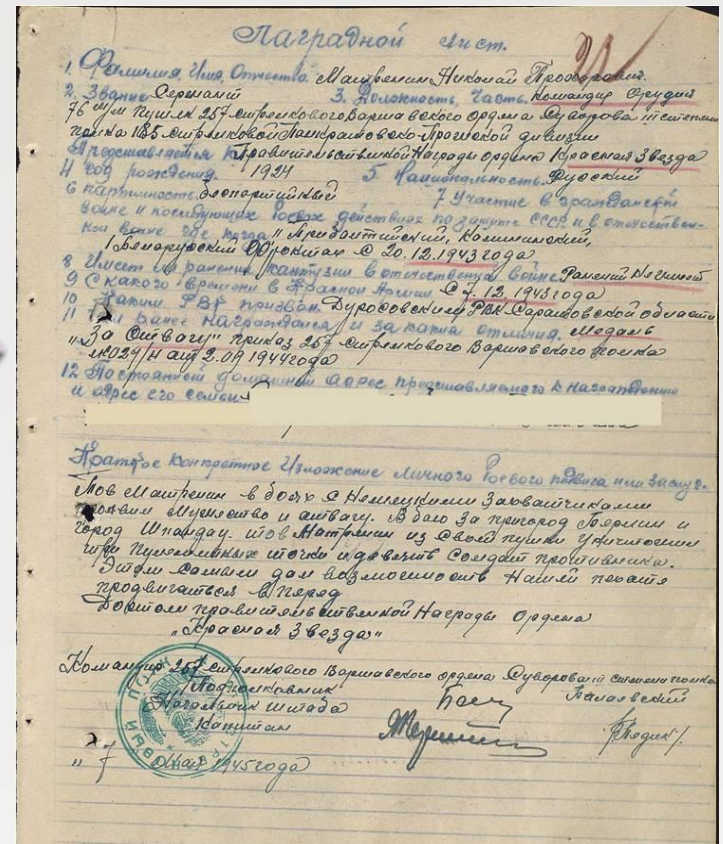 Наградной лист.
1. Фамилия, Имя, Отчество. Матренин Николай Прохорович.
2. Звание Сержант 3. Должность, часть. Командир орудия
76 м/м пушек 257 стрелкового Варшавского ордена Суворова III степени
полка 185 стрелковой Панкратовско-Пражской дивизии
Представляется к Правительственной Награды ордена Красная Звезда
4 год рождения 1924 5 Национальность. Русский
6 партийность. беспартийный 7 Участие в гражданской
войне и последующих боевых действиях по защите СССР и в отечествен-
ной войне где когда "Прибалтийский, Калининский,
1 Белорусский Фронтах С 20.12.1943 года
8 Имеет ли ранения контузии в отечественную войне Ранений не имеет
9 С какого времени в Красной Армии С 7.12.1943 года
10 Каким РВК призван Саратовской области
11 ли ранее награждался и за какие отличия. Медаль
"За Отвагу" приказ 257 стрелкового Варшавского полка
№029/Н от 2.09 1944 года
12 Постоянный домашний адрес представляемого к награждению
и адрес его семьи
Краткое конкретное Изложение личного боевого подвига или заслуг.
Тов Матренин в боях с Немецкими Захватчиками
проявил Мужество и отвагу. В бою за пригород Берлин и
город Шпандау. тов Матренин из своей пушки уничтожил
три пулеметных точки и девять солдат противника.
Этим самым дал возможность Нашей пехоте
продвигаться вперед
Достоин правительственной Награды Ордена
"Красная Звезда"
Командир 257 стрелкового Варшавского ордена Суворова III степени полка
Подполковник
Начальник штаба
Капитан
"7 мая 1945 года